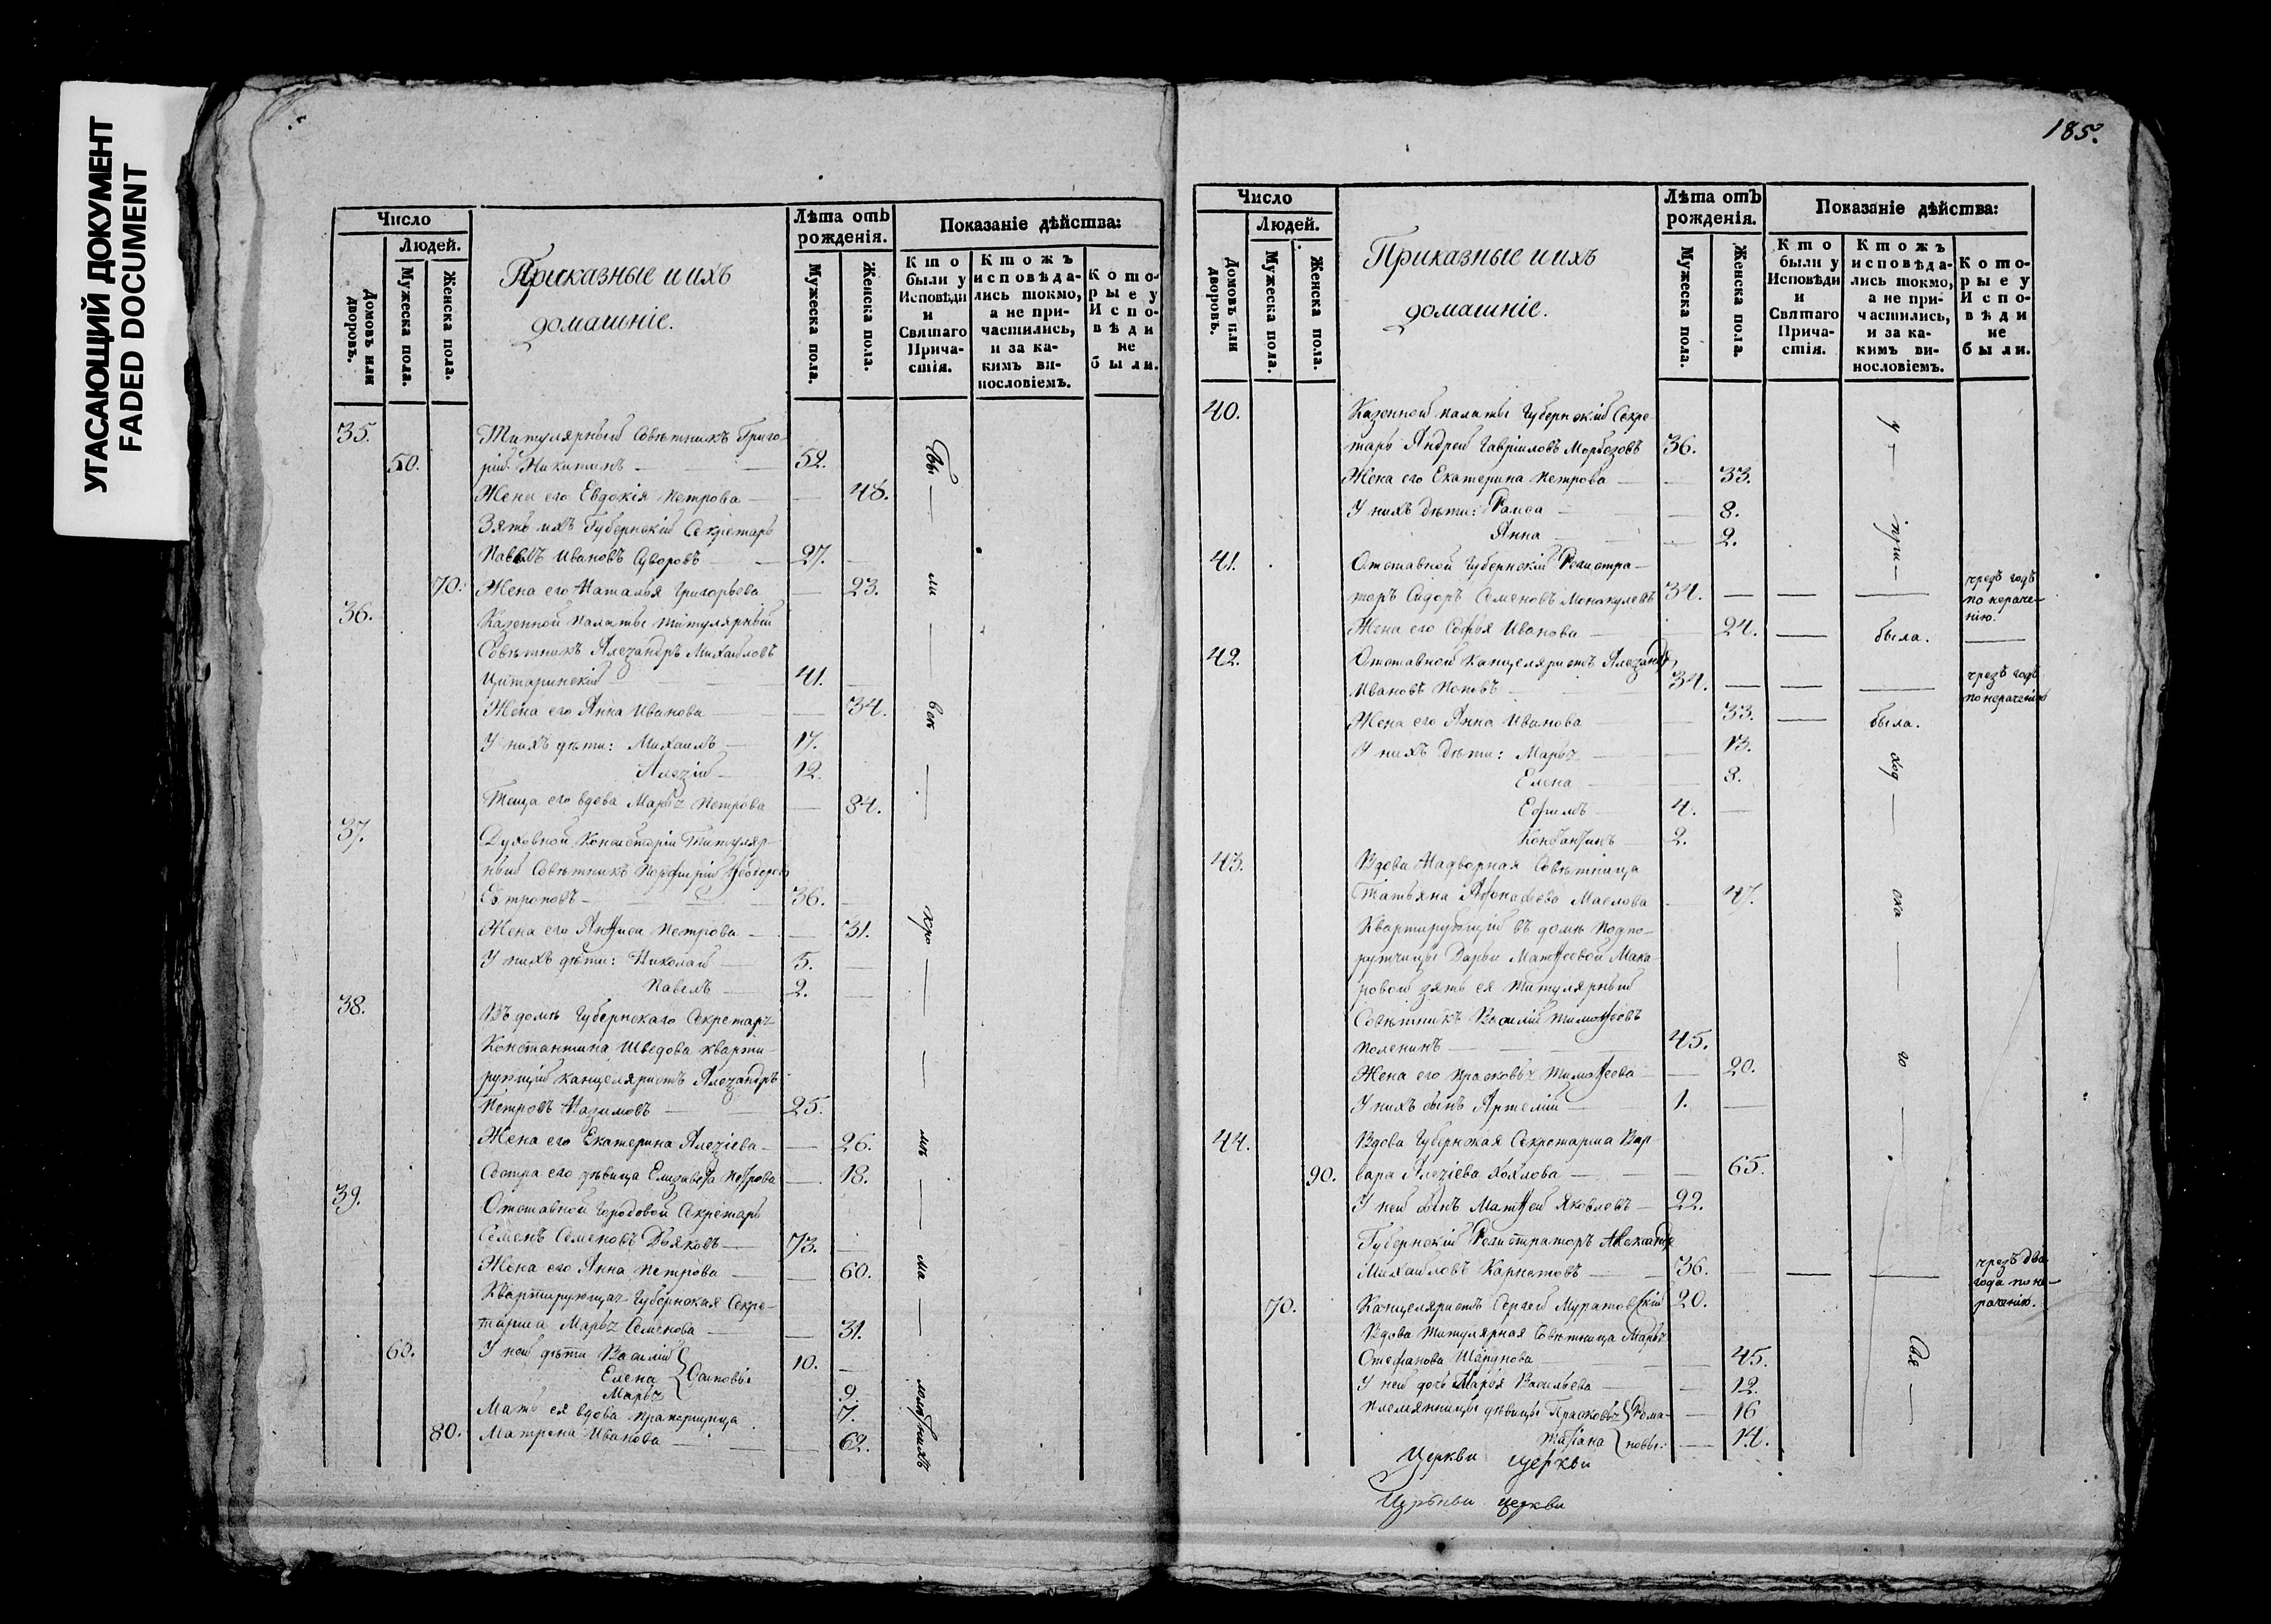 УГАСАЮЩИЙ ДОКУМЕНТ
FADED DOCUMENT
Число
Людей.
Домовъ или дворовъ.
Мужеска пола.
Женска пола.
Приказные и ихъ
домашніе.
Лѣта отъ
рожденія.
Мужеска пола.
Женска пола.
Показаніе дѣйства:
Кто
были у
Исповѣди
и
Святаго
Прича-
стія.
Ктожъ
исповѣда-
лись токмо,
а не при-
частились,
и за ка-
кимъ ви-
нословіемъ.
Кото-
рые у
Испо-
вѣди
не
были.
35. Титулярный Совѣтникъ Григо-
50. рій Никитинъ — 52.
Жена его Евдокія Петрова — 48.
Зять ихъ Губернскій Секретарь
Павелъ Ивановъ Суворовъ — 27.
70. Жена его Наталья Григорьева — 23.
36. Казенной Палаты Титулярный
Совѣтникъ Алеѯандръ Михайловъ
41.
Жена его Анна Иванова — 34.
У нихъ дѣти: Михаилъ — 17.
Алеѯій — 12.
Теща его вдова Марья Петрова — 84.
37. Духовной Консисторіи Титуляр-
ный Совѣтникъ Порфирій Ѳеодоровъ
36.
Жена его Анѳиса Петрова — 31.
У нихъ дѣти: Николай — 5.
Павелъ — 2.
38. Въ домѣ Губернскаго Секретаря
Константина Шведова кварти-
рующій канцеляристъ Алеѯандръ
Петровъ Назимовъ — 25.
Жена его Екатерина Алеѯіева — 26.
Сестра его дѣвица Елизавета Петрова — 18.
39. Отставной Городовой Секретарь
Семенъ Семеновъ Дьяковъ — 73.
Жена его Анна Петрова — 60.
Квартирующая Губернская Секре-
тарша Марья Семенова — 31.
60. У ней дѣти Василій 10.
Елена 9.
Марья 7.
Мать ея вдова прапорщица
80. Матрена Иванова — 62.
185.
Число
Людей.
Домовъ или дворовъ.
Мужеска пола.
Женска пола.
Приказные и ихъ
домашніе.
Лѣта отъ
рожденія.
Мужеска пола.
Женска пола.
Показаніе дѣйства:
Кто
были у
Исповѣди
и
Святаго
Прича-
стія.
Ктожъ
исповѣда-
лись токмо,
а не при-
частились,
и за ка-
кимъ ви-
нословіемъ.
Кото-
рые у
Испо-
вѣди
не
были.
40. Казенной палаты Губернскій Секре-
тарь Андрей Гавріиловъ 36.
Жена его Екатерина Петрова — 33.
У нихъ дѣти: Раиса — 8.
Анна — 2.
41. Отставной Губернскій Регистра-
торъ Сидоръ Семеновъ 34. — — — чрезъ годъ
по нераче-
нію.
Жена его Софья Иванова — 24. — была. —
42. Отставной Канцеляристъ Алеѯандръ
Ивановъ Поповъ — 34. — — — чрезъ годъ
по нерачению
Жена его Анна Иванова — 33. — была.
У нихъ дѣти: Марья — 13.
Елена — 8.
Ефимъ — 4.
Константинъ — 2.
43. Вдова Надворная Совѣтница
Татьяна Маслова 47.
Квартирующій въ домѣ Подпо-
ручицы Дарьи Матѳеевой Мака-
ровой зять ея Титулярный
Совѣтникъ Василій Тимоѳеевъ
Поленинъ — 45.
Жена его Прасковья Тимоѳеева — 20.
У нихъ сынъ Артемій — 1.
44. Вдова Губернская Секретарша Вар-
90. вара Алеѯіева Хохлова — 65.
У ней сынъ Матѳей Яковлевъ — 22.
Губернскій Регистраторъ Александръ
Михайловъ Карпетовъ — 36. — — чрезъ два
года по не-
рачению.
70. Канцеляристъ Сергей Муратовскій 20.
Вдова Титулярная Совѣтница Марья
Стефанова 45.
У ней дочь Марья Васильева — 12.
Племянницы дѣвицы Прасковья } Рома- — 16
Татіана } новы: — 14.
Церкви церкви
церкви